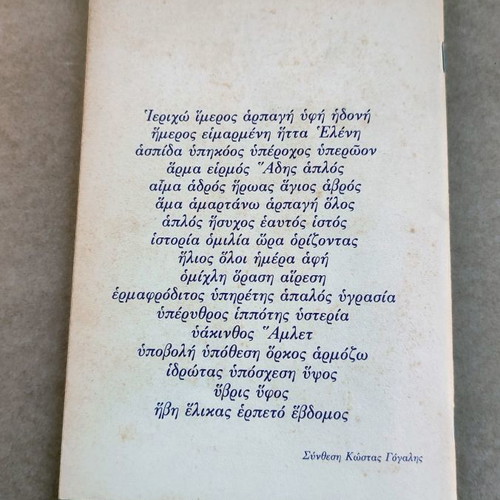 Ἱεριχώ ἵμερος ἁρπαγή ὑφή ἡδονή
ἥμερος εἱμαρμένη ἥττα Ἑλένη
ἀσπίδα ὑπηκόος ὑπέροχος ὑπερῶον
ἅρμα εἱρμός Ἅδης ἁπλός
αἷμα ἁδρός ἥρωας ἅγιος ἁβρός
ἅμα ἁμαρτάνω ἁρπαγή ὅλος
ἁπλός ἥσυχος ἑαυτός ἱστός
ἱστορία ὁμιλία ὥρα ὁρίζοντας
ἥλιος ὅλοι ἡμέρα ἁφή
ὁμίχλη ὅραση αἵρεση
ἑρμαφρόδιτος ὑπηρέτης ἁπαλός ὑγρασία
ὑπέρυθρος ἱππότης ὑστερία
ὑάκινθος Ἅμλετ
ὑποβολή ὑπόθεση ὅρκος ἁρμόζω
ἱδρώτας ὑπόσχεση ὕψος
ὕβρις ὕφος
ἥβη ἕλικας ἑρπετό ἕβδομος
Σύνθεση Κώστας Γόγαλης